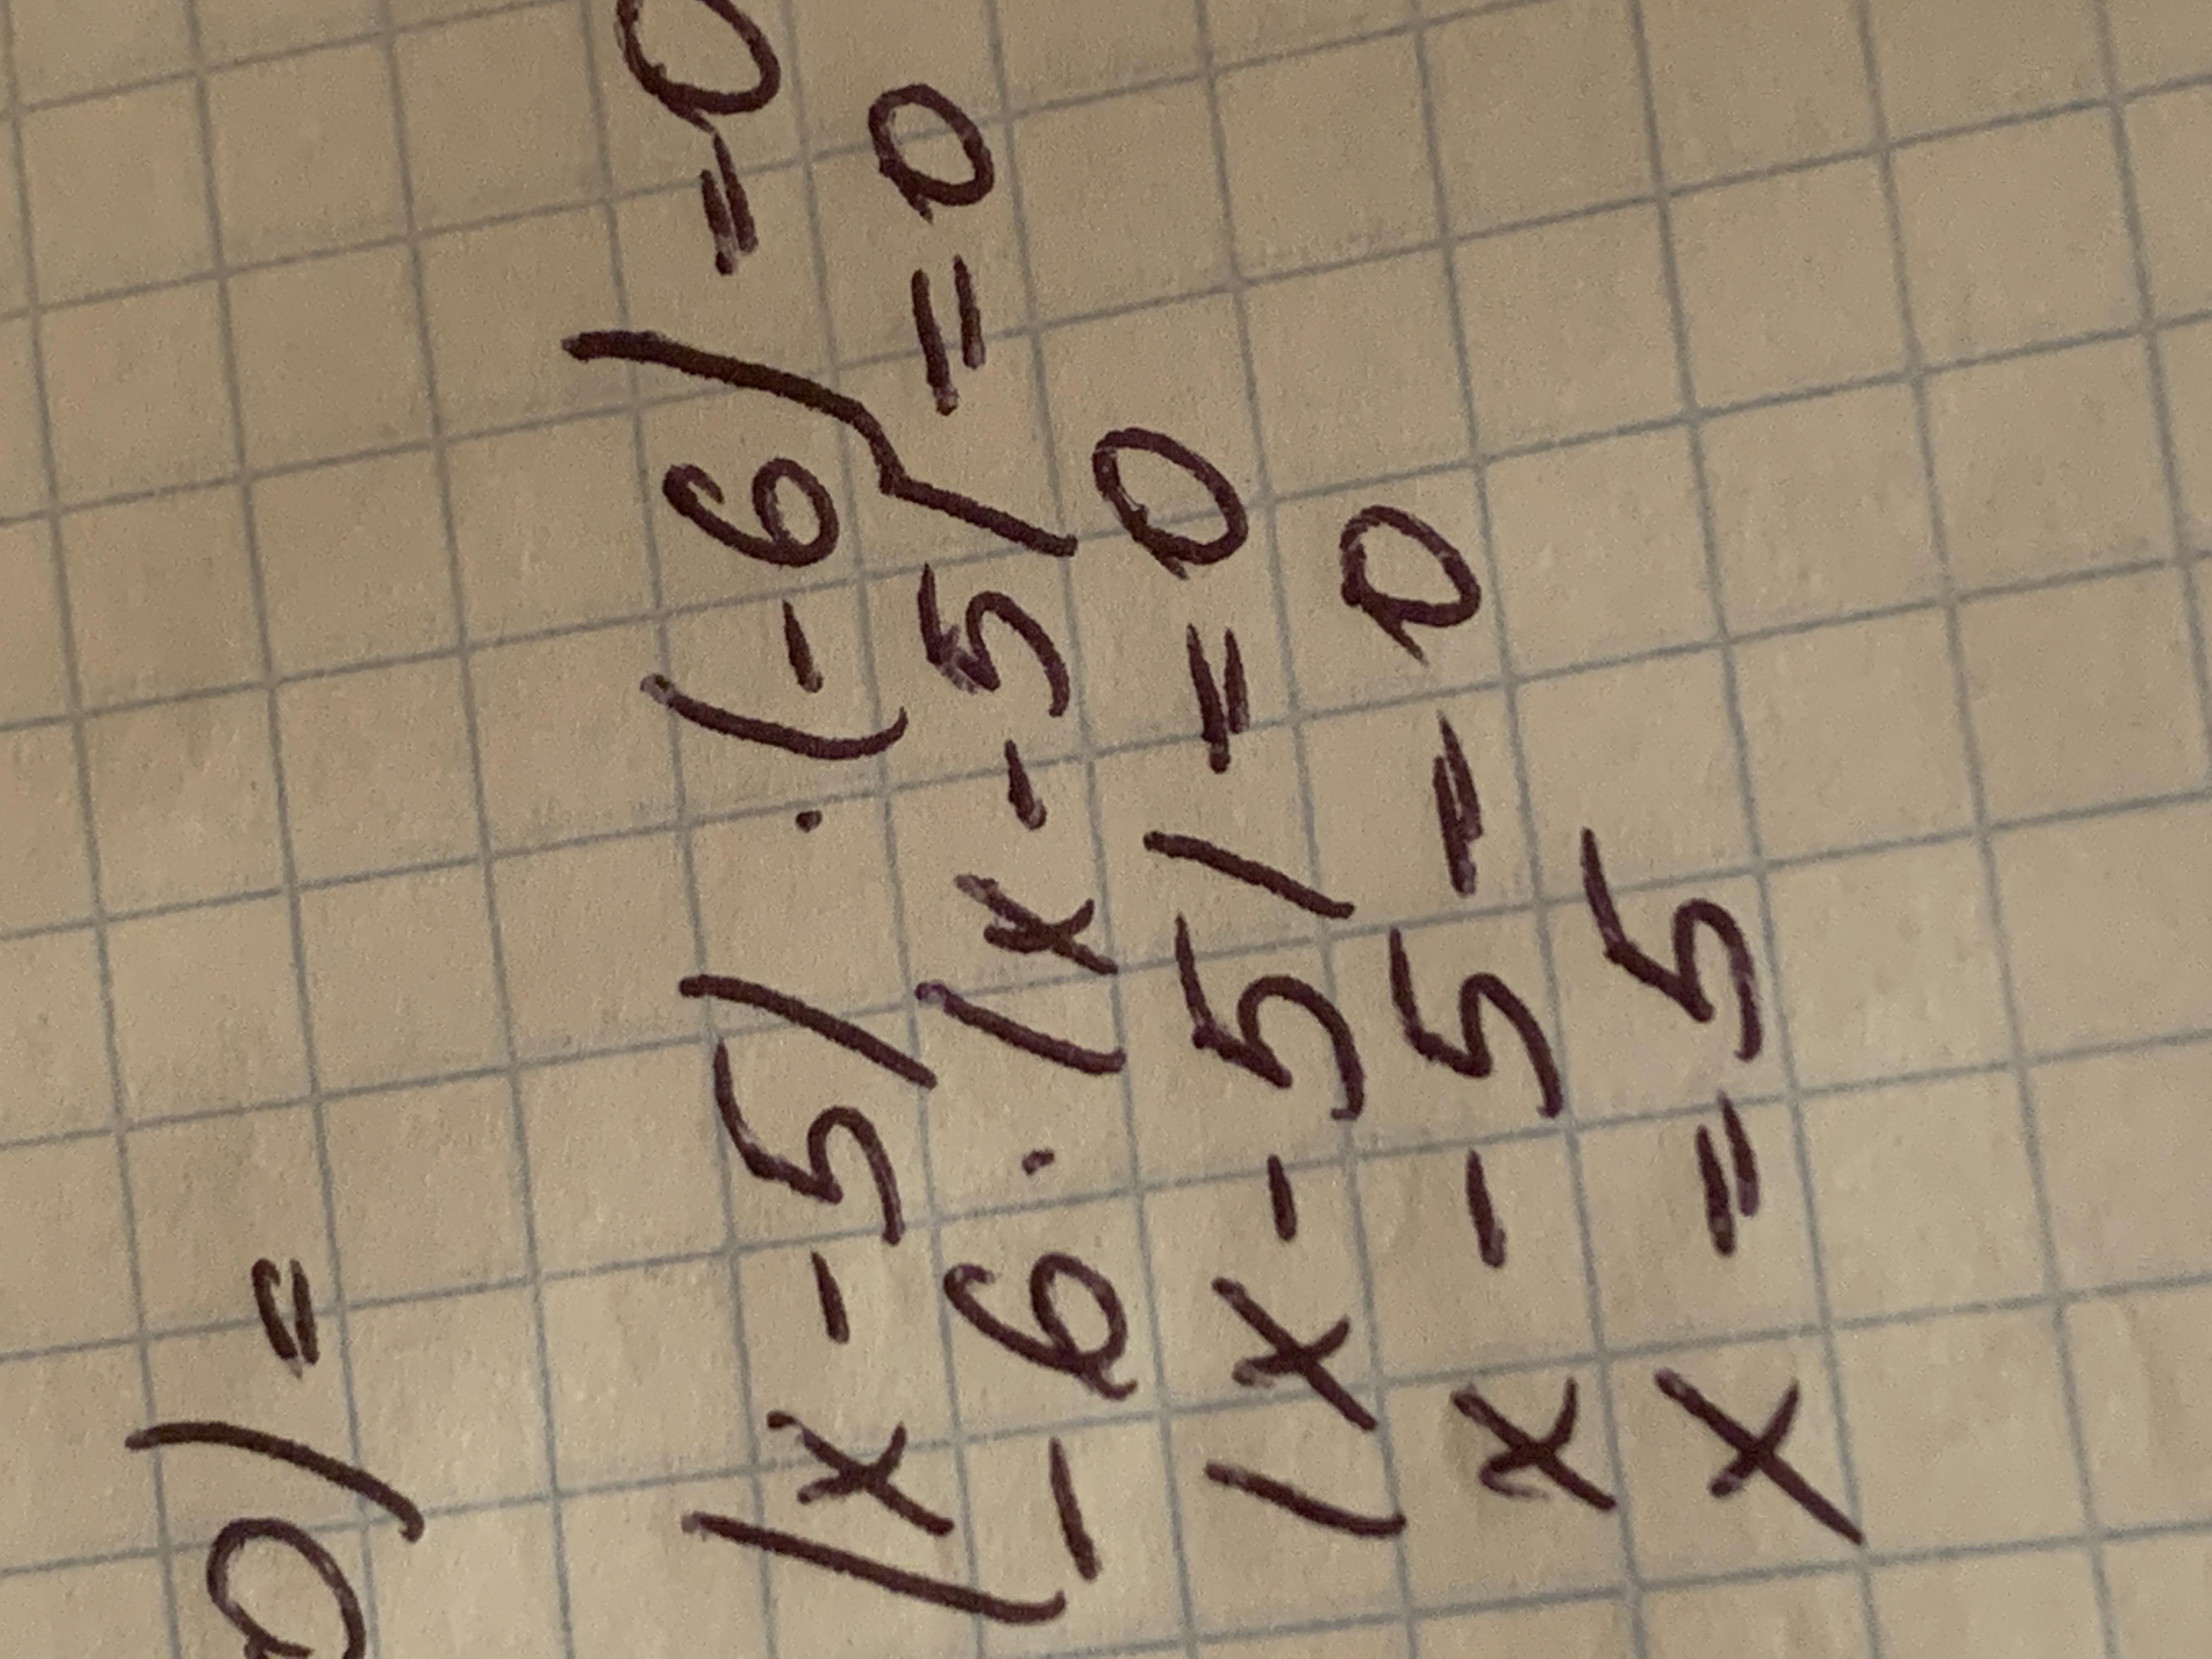 0) =
(x - 5) · (-6) = 0
-6 · (x - 5) = 0
(x - 5) = 0
x - 5 = 0
x = 5